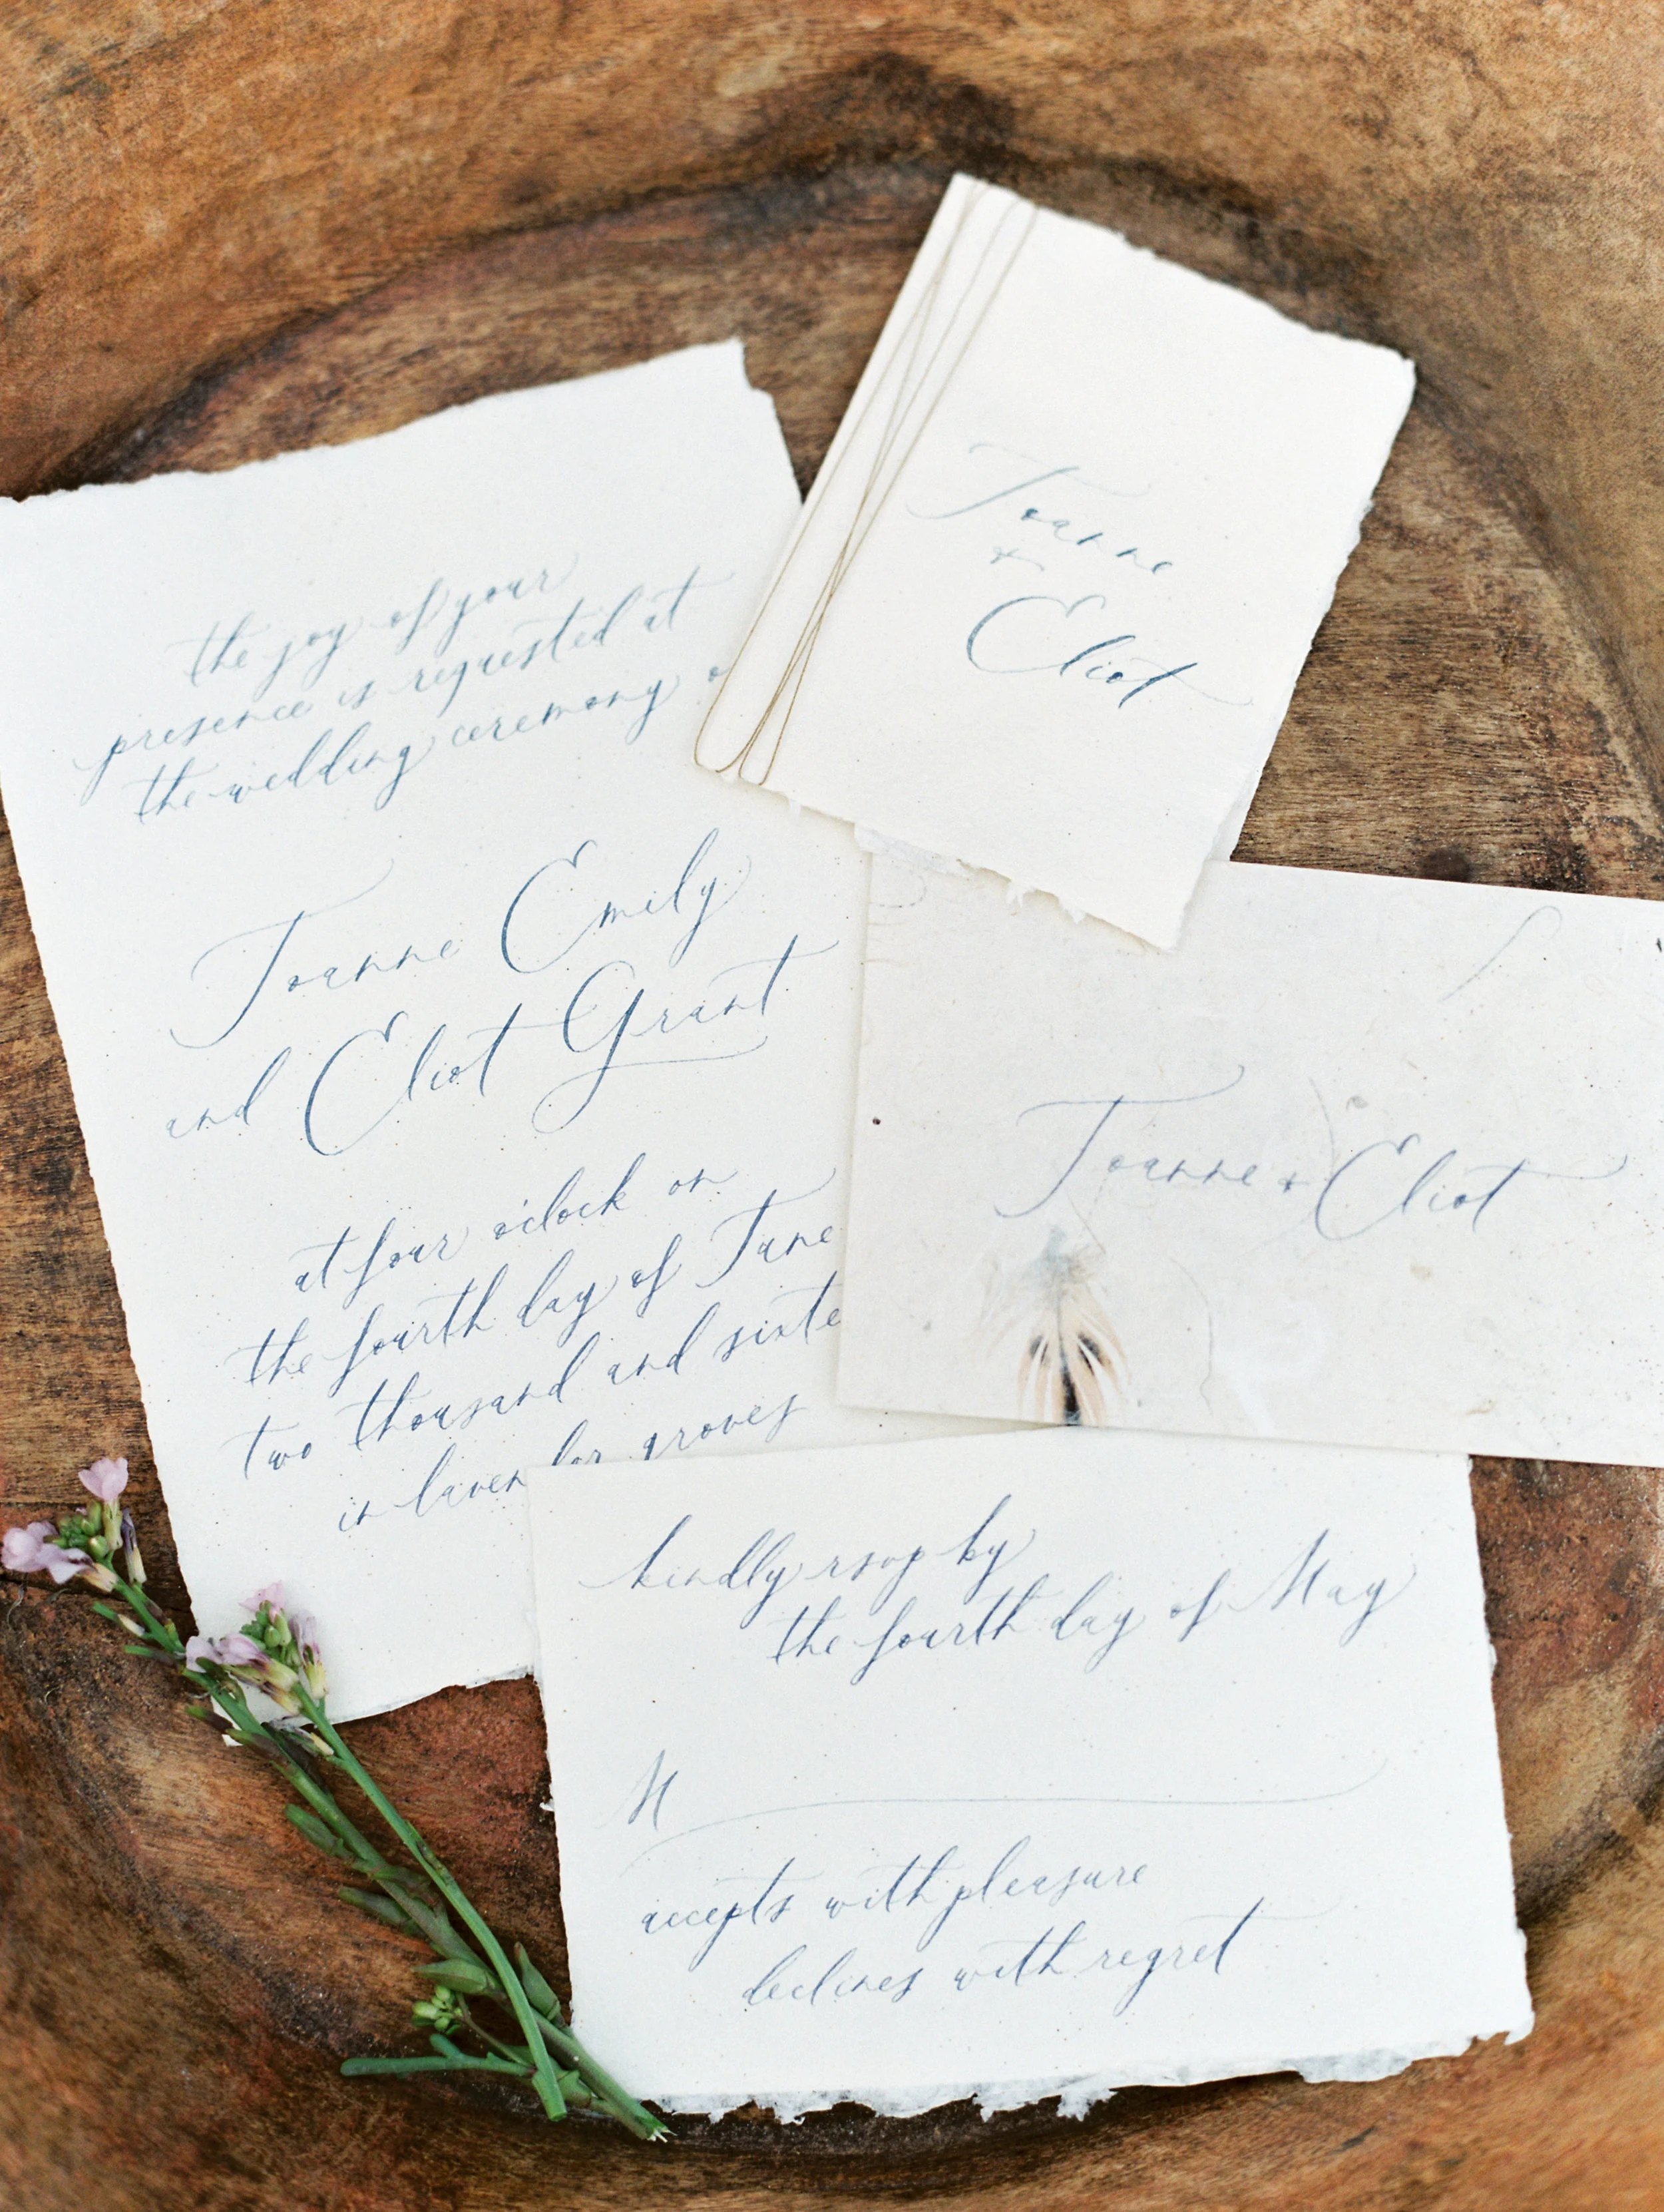 the joy of your
presence is requested at
the wedding ceremony
Joanne Emily
and Eliot Grant
at four o'clock on
the fourth day of June
two thousand and sixte
in lavender groves
Joanne
+
Eliot
Joanne + Eliot
kindly rsvp by
the fourth day of May
M
accepts with pleasure
declines with regret